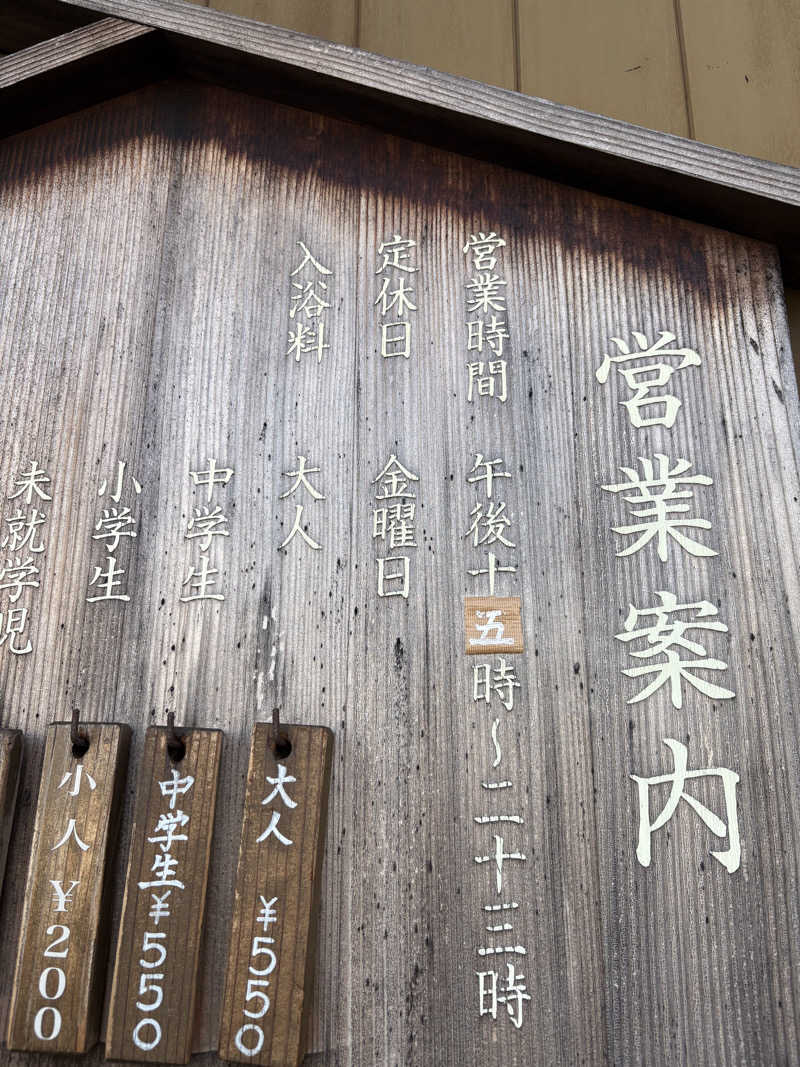 営業案内
営業時間 午後十五時～二十三時
定休日 金曜日
入浴料 大人
中学生
小学生
未就学児
大人 ¥550
中学生 ¥550
小人 ¥200